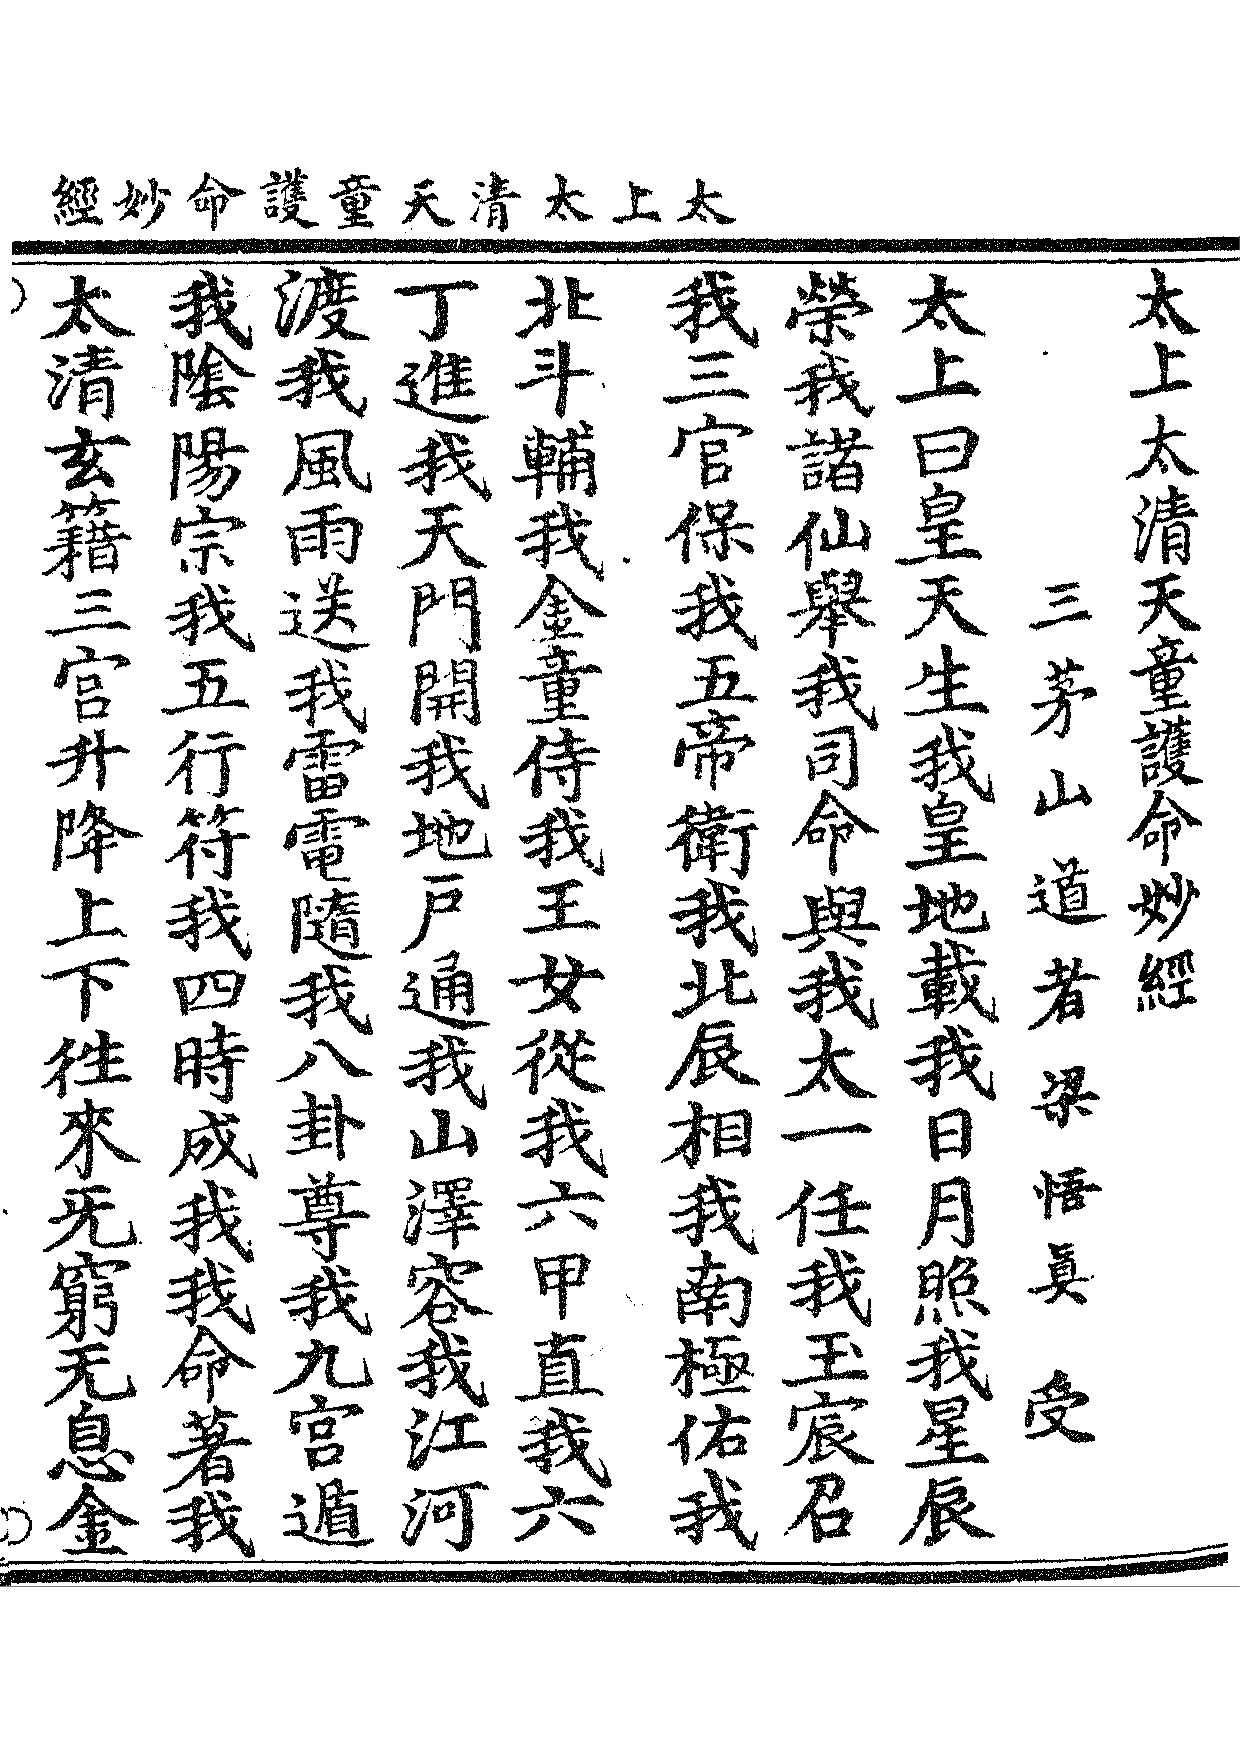 太上太清天童護命妙經
太上太清天童護命妙經
三茅山道者梁悟眞受
太上曰皇天生我皇地載我日月照我星辰
榮我諸仙舉我司命與我太一任我玉宸召
我三官保我五帝衛我北辰相我南極佑我
北斗輔我金童侍我王女從我六甲直我六
丁進我天門開我地戸通我山澤容我江河
渡我風雨送我雷電隨我八卦尊我九宮遁
我陰陽宗我五行符我四時成我我命著我
太清玄籍三宮升降上下徃來旡窮无息金